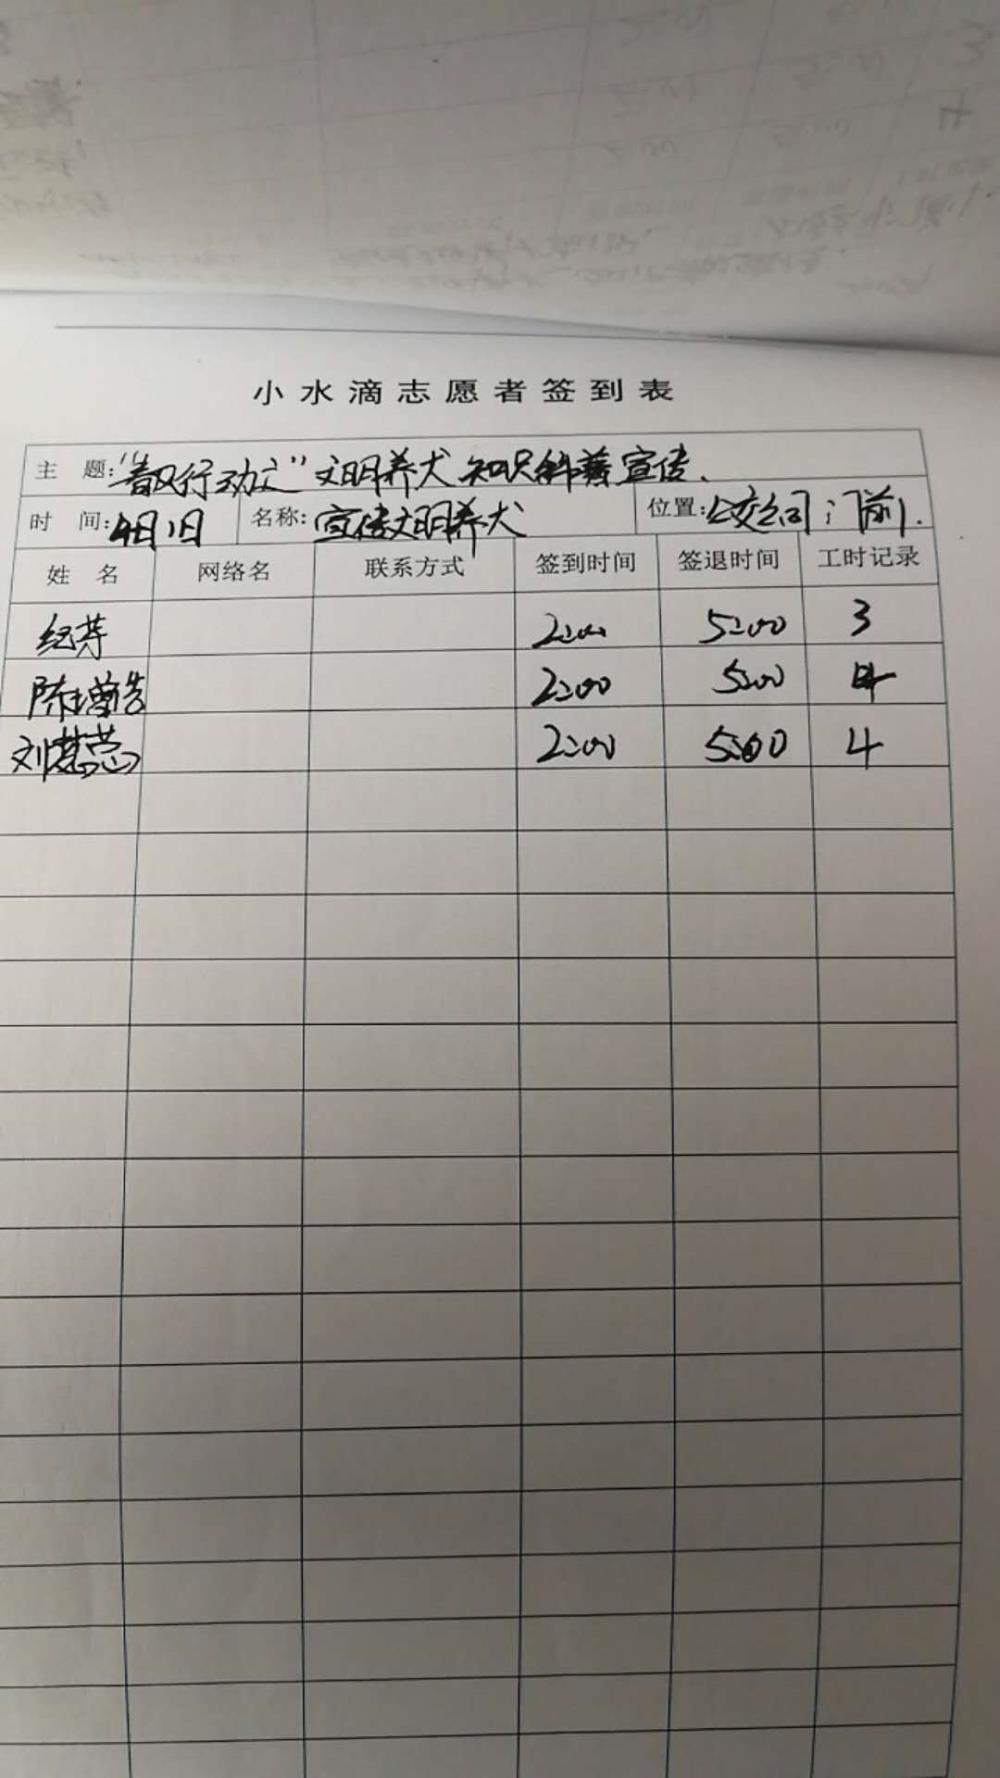 小水滴志愿者签到表
主 题:"春风行动之"文明养犬知识科普宣传.
时 间:4月1日 名称:宣传文明养犬 位置:公交公司门前.
姓 名 网络名 联系方式 签到时间 签退时间 工时记录
纪芳 2:00 5:00 3
陈增浩 2:00 5:00 4
刘慧蕊 2:00 5:00 4